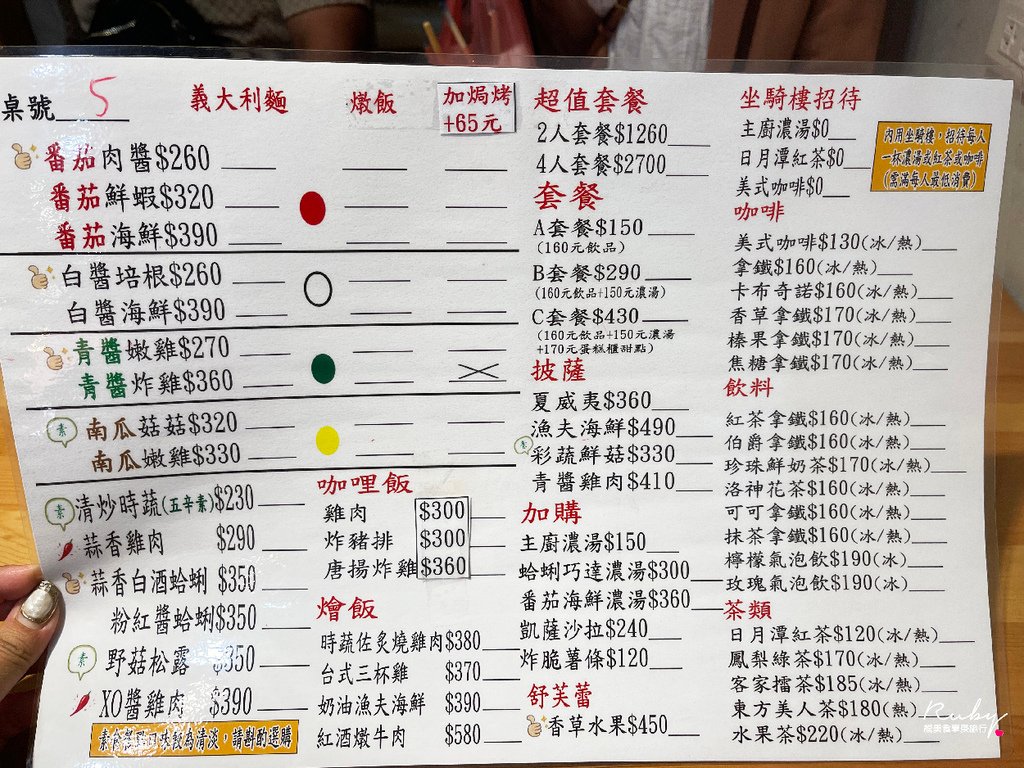 桌號 5
義大利麵
燉飯
加焗烤
+65元
番茄肉醬$260
番茄鮮蝦$320
番茄海鮮$390
白醬培根$260
白醬海鮮$390
青醬嫩雞$270
青醬炸雞$360
素
南瓜菇菇$320
南瓜嫩雞$330
素
清炒時蔬(五辛素)$230
蒜香雞肉 $290
蒜香白酒蛤蜊 $350
粉紅醬蛤蜊$350
素
野菇松露 $350
XO醬雞肉 $390
素食餐點口味較為清淡，請斟酌選購
咖哩飯
雞肉 $300
炸豬排 $300
唐揚炸雞 $360
燴飯
時蔬佐炙燒雞肉$380
台式三杯雞 $370
奶油漁夫海鮮 $390
紅酒燉牛肉 $580
超值套餐
2人套餐$1260
4人套餐$2700
套餐
A套餐$150
(160元飲品)
B套餐$290
(160元飲品+150元濃湯)
C套餐$430
(160元飲品+150元濃湯
+170元蛋糕櫃甜點)
披薩
夏威夷$360
漁夫海鮮$490
素
彩蔬鮮菇$330
青醬雞肉$410
加購
主廚濃湯$150
蛤蜊巧達濃湯$300
番茄海鮮濃湯$360
凱薩沙拉$240
炸脆薯條$120
舒芙蕾
香草水果$450
坐騎樓招待
主廚濃湯$0
日月潭紅茶$0
美式咖啡$0
內用坐騎樓，招待每人
一杯濃湯或紅茶或咖啡
(需滿每人最低消費)
咖啡
美式咖啡$130(冰/熱)
拿鐵$160(冰/熱)
卡布奇諾$160(冰/熱)
香草拿鐵$170(冰/熱)
榛果拿鐵$170(冰/熱)
焦糖拿鐵$170(冰/熱)
飲料
紅茶拿鐵$160(冰/熱)
伯爵拿鐵$160(冰/熱)
珍珠鮮奶茶$170(冰/熱)
洛神花茶$160(冰/熱)
可可拿鐵$160(冰/熱)
抹茶拿鐵$160(冰/熱)
檸檬氣泡飲$190(冰)
玫瑰氣泡飲$190(冰)
茶類
日月潭紅茶$120(冰/熱)
鳳梨綠茶$170(冰/熱)
客家擂茶$185(冰/熱)
東方美人茶$180(熱)
水果茶$220(冰/熱)
Ruby